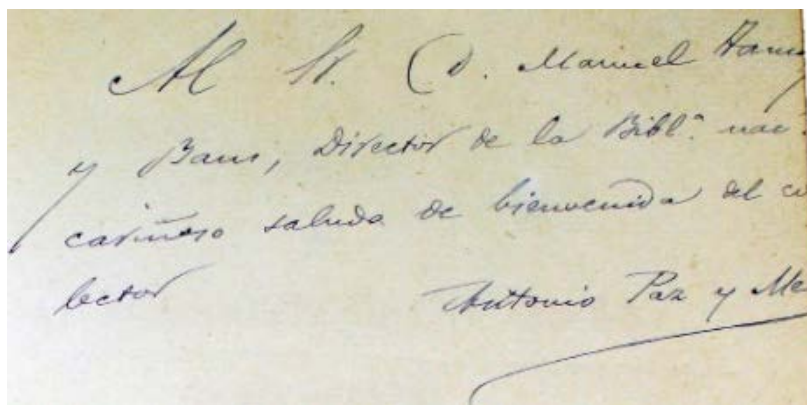 Al Sr. D. Manuel Tamay
y Baus, Director de la Bibl.ª nac.
cariñoso saludo de bienvenida del co
lector
Antonio Paz y Me